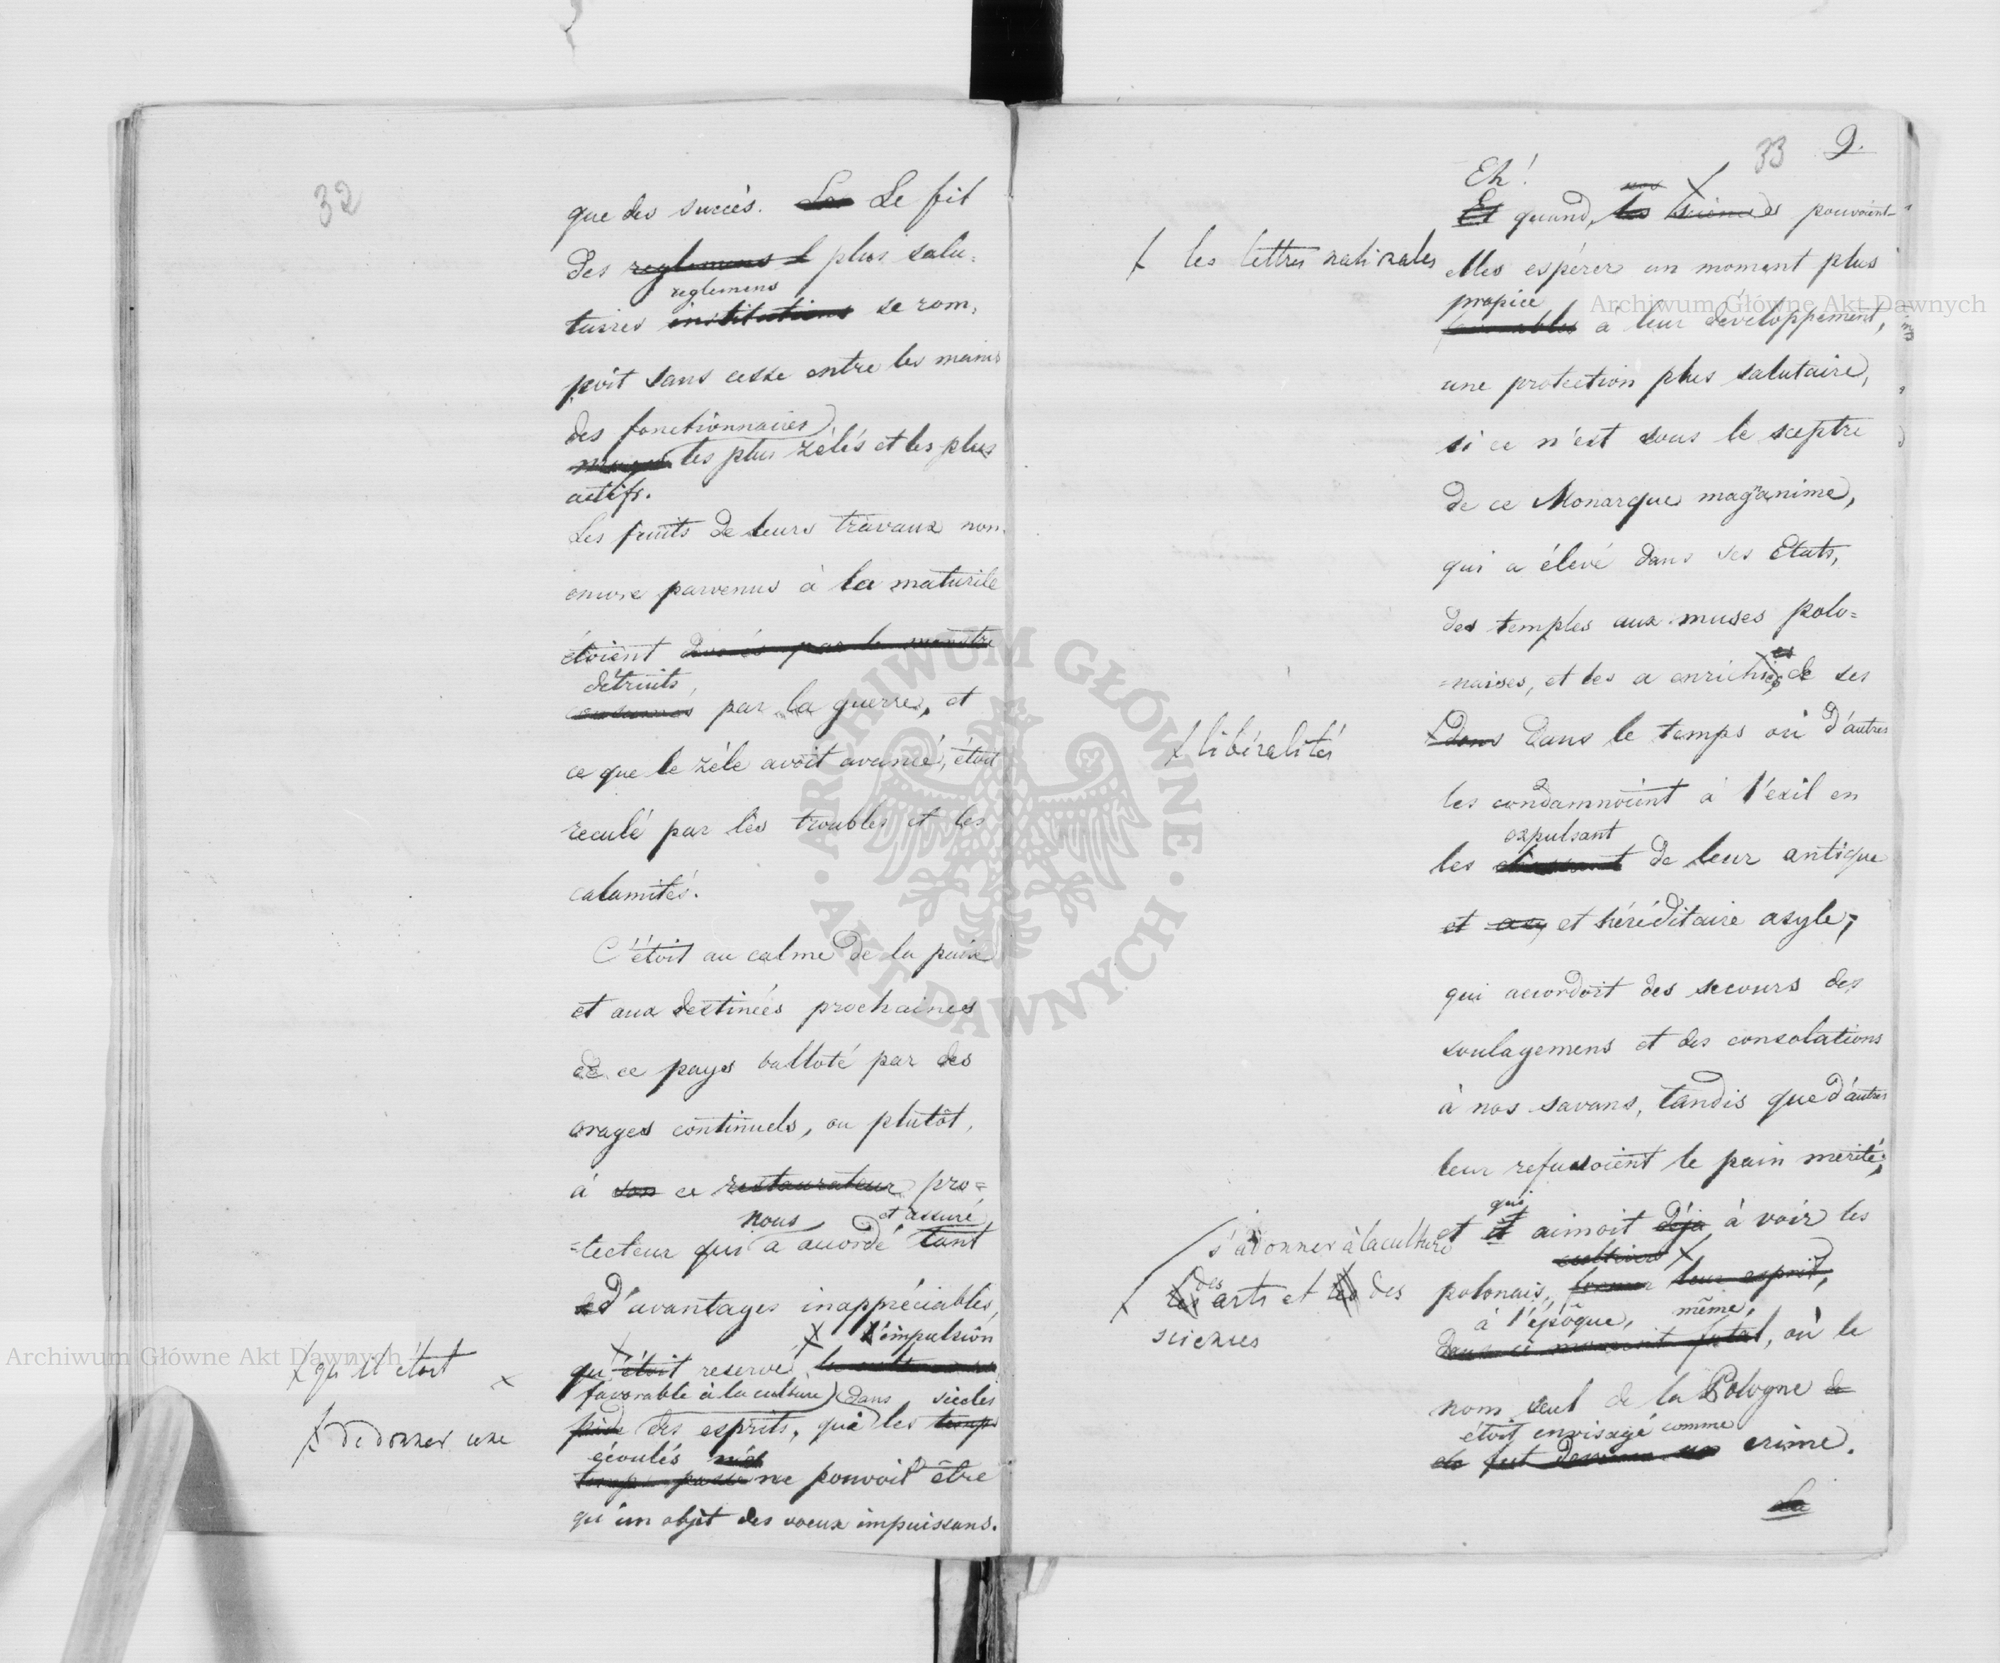 32
que des succès. Le fil
des reglemens plus salu-
reglemens
taires institutions se rom,
poit sans cesse entre les mains
des fonctionnaires
les plus zèlés et les plus
actifs.
Les fruits de leurs travaux non
encore parvenus à la maturité
étoient par le monstre
détruits,
par la guerre, et
ce que le zèle avoit avancé, étoit
reculé par les troubles et les
calamités.
C'étoit au calme de la paix
et aux destinées prochaines
de ce pays balloté par des
orages continuels, ou plutôt,
à son ce restaurateur pro=
nous et assuré
=tecteur qui a accordé tant
d'avantages inappréciables,
X l'impulsion
f qu'il étoit
qu'étoit reservé
favorable à la culture dans siecles
f de donner une
des esprits, que les temps
écoulés
ne pouvoit être
qu'un objet des voeux impuissans.
33 9.
Eh!
nos
Et quand, les sciences pouvoient-
f les lettres nationales
elles espérer un moment plus
propice
favorables à leur développement,
une protection plus salutaire,
si ce n'est sous le sceptre
de ce Monarque maganime,
qui a élevé dans ses Etats,
des temples aux muses polo=
=naises, et les a enrichies de ses
f libéralités
dons dans le temps où d'autres
les condamnoient à l'exil en
expulsant
les chassant de leur antique
et et héréditaire asyle,
qui accordoit des secours des
soulagemens et des consolations
à nos savans, tandis que d'autres
leur refusoient le pain merité;
qui
et et aimoit déja à voir les
s'adonner à la culture
cultiver X
des
f les arts et les des
sciences
polonais, former leur esprit,
à l'époque, même,
dans ce moment fatal, où le
nom seul de la Pologne de
étoit envisagé comme
fut devenu un crime.
La
Archiwum Główne Akt Dawnych
Archiwum Główne Akt Dawnych
ARCHIWUM GŁÓWNE · AKT DAWNYCH ·